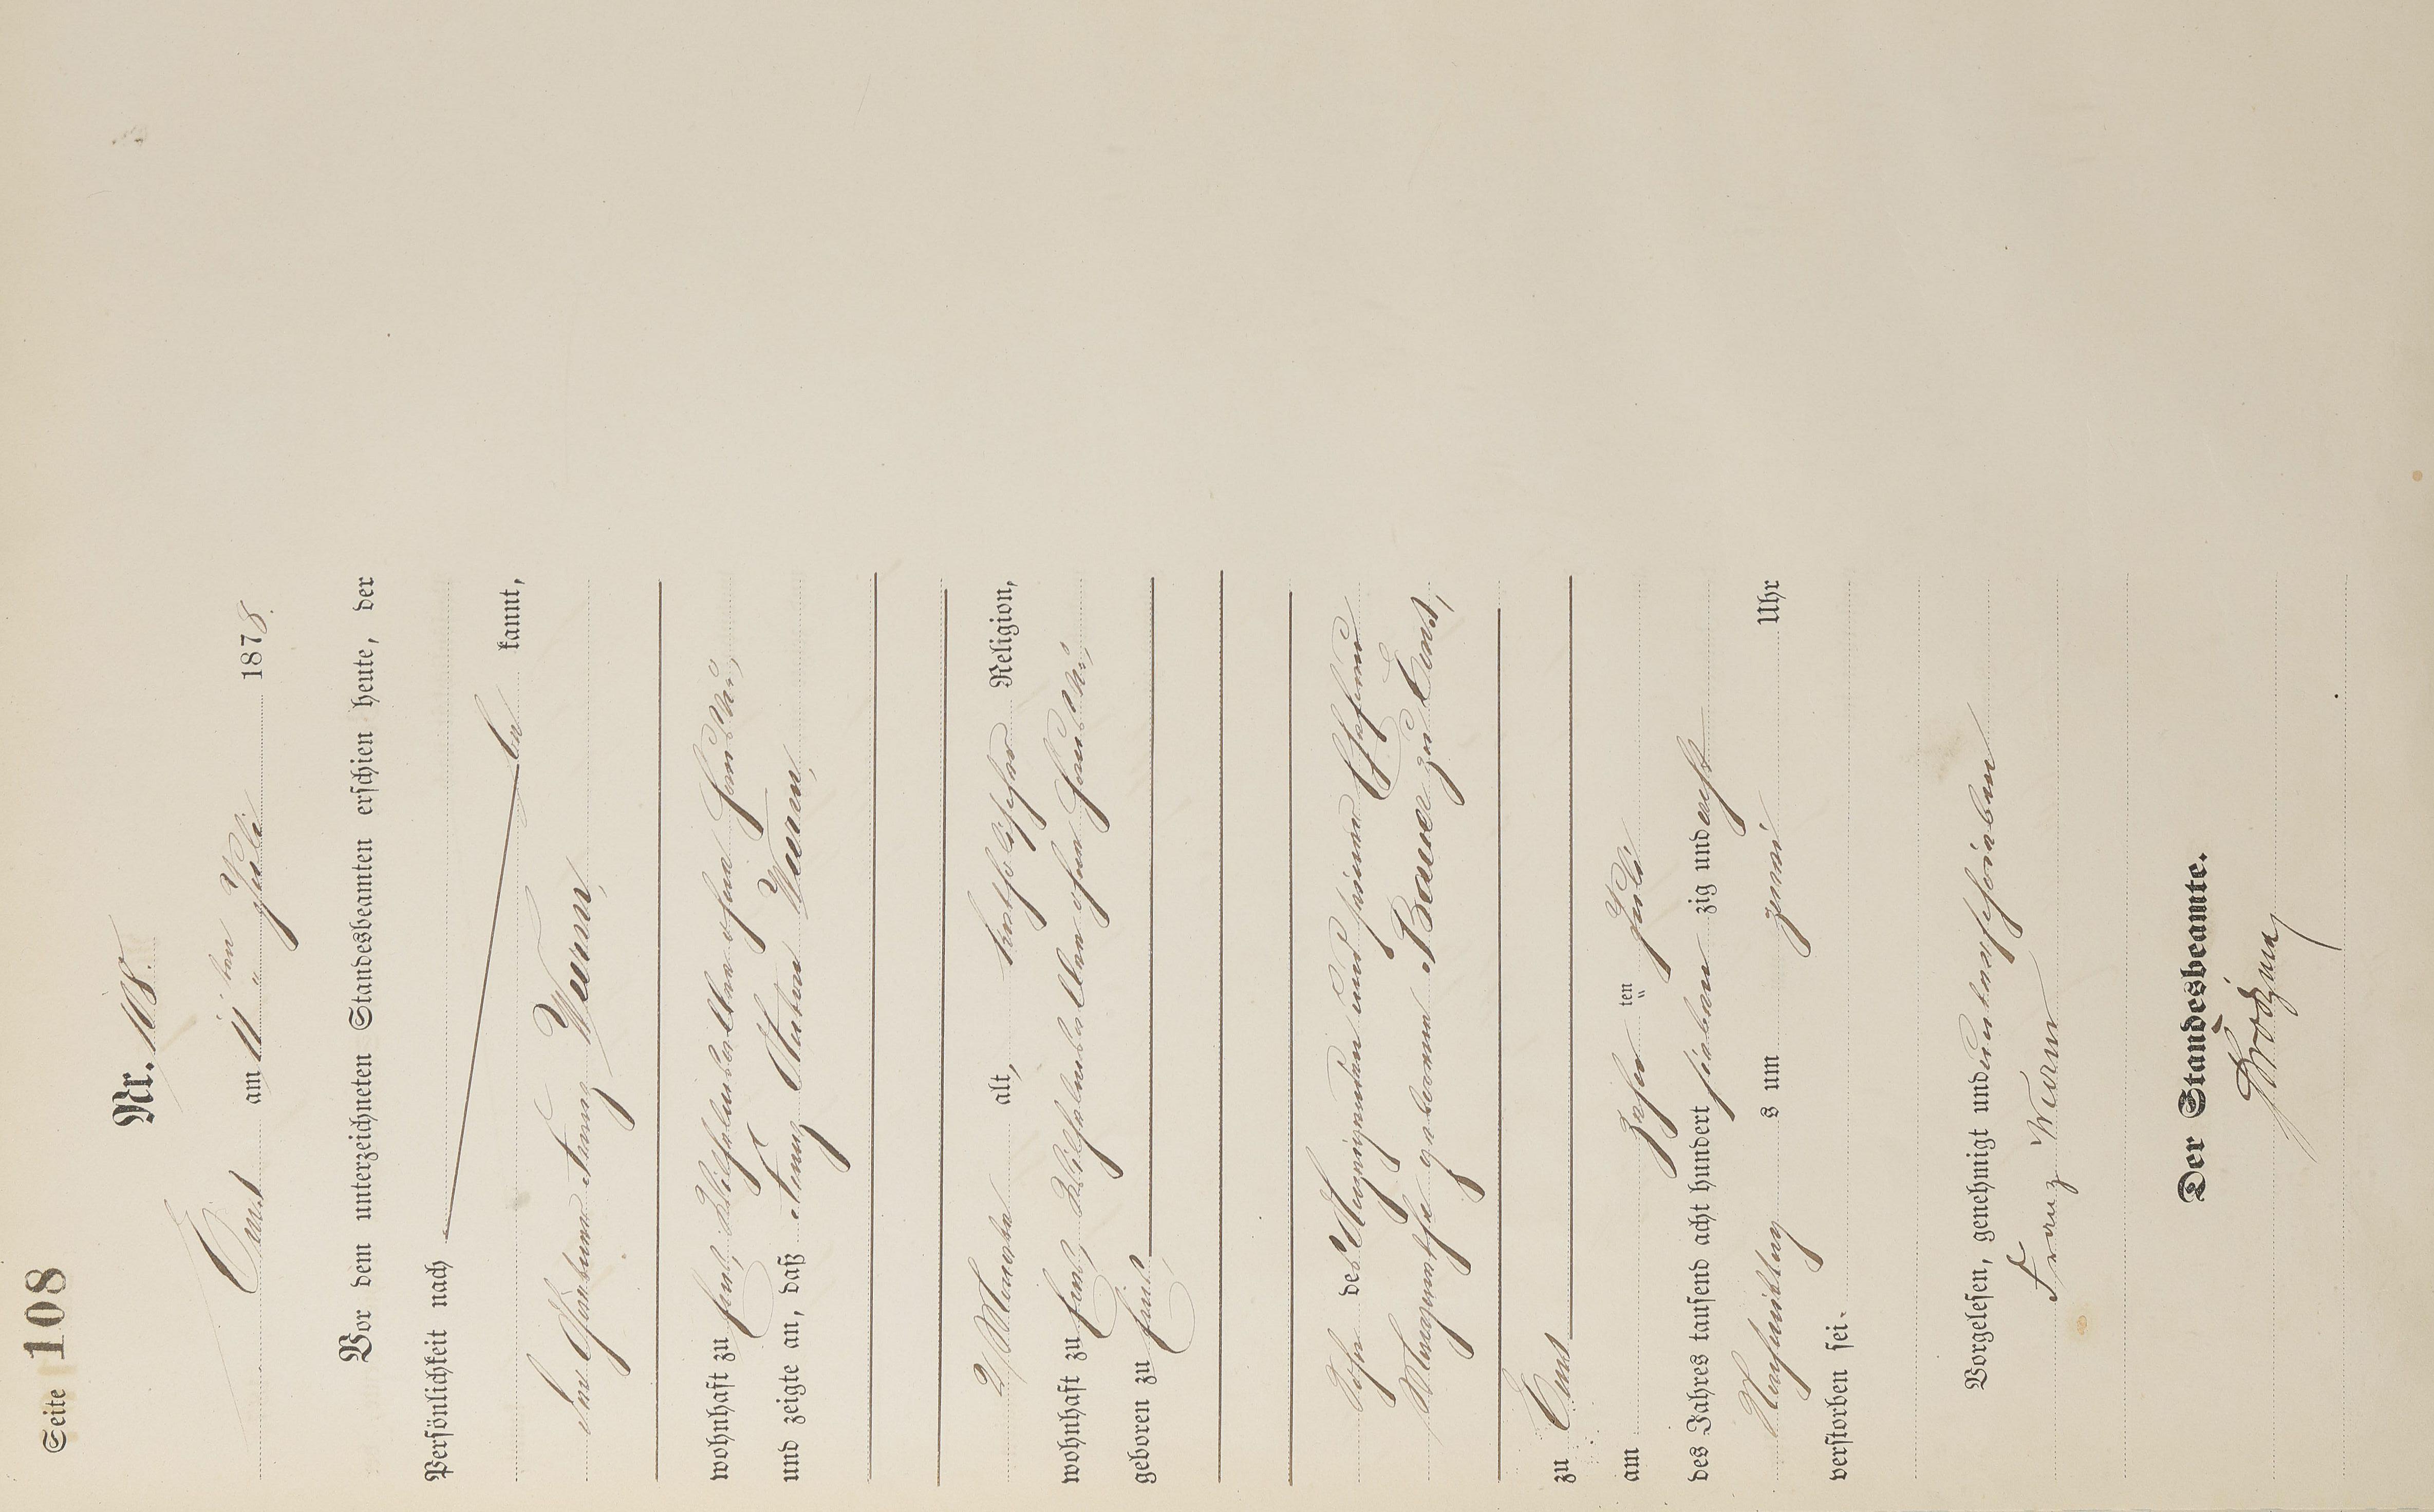 Seite 108
Nr. 108.
Ems am 11ten Juli 1878.
Vor dem unterzeichneten Standesbeamten erschien heute, der
Persönlichkeit nach
be kannt,
der Franz Wurm,
wohnhaft zu Ems, Wilhelmsallee
und zeigte an, daß Franz Anton Wurm,
2 Monate alt, katholischer Religion,
wohnhaft zu Ems, Wilhelmsallee
geboren zu Ems,
Sohn des Anzeigenden und seiner Ehefrau
Margarethe geborenen Bauer zu Ems,
zu Ems
am zehn ten Juli
des Jahres tausend acht hundert sieben zig und acht
Nachmittag s um zwei Uhr
verstorben sei.
Vorgelesen, genehmigt und unterschrieben
Franz Wurm
Der Standesbeamte.